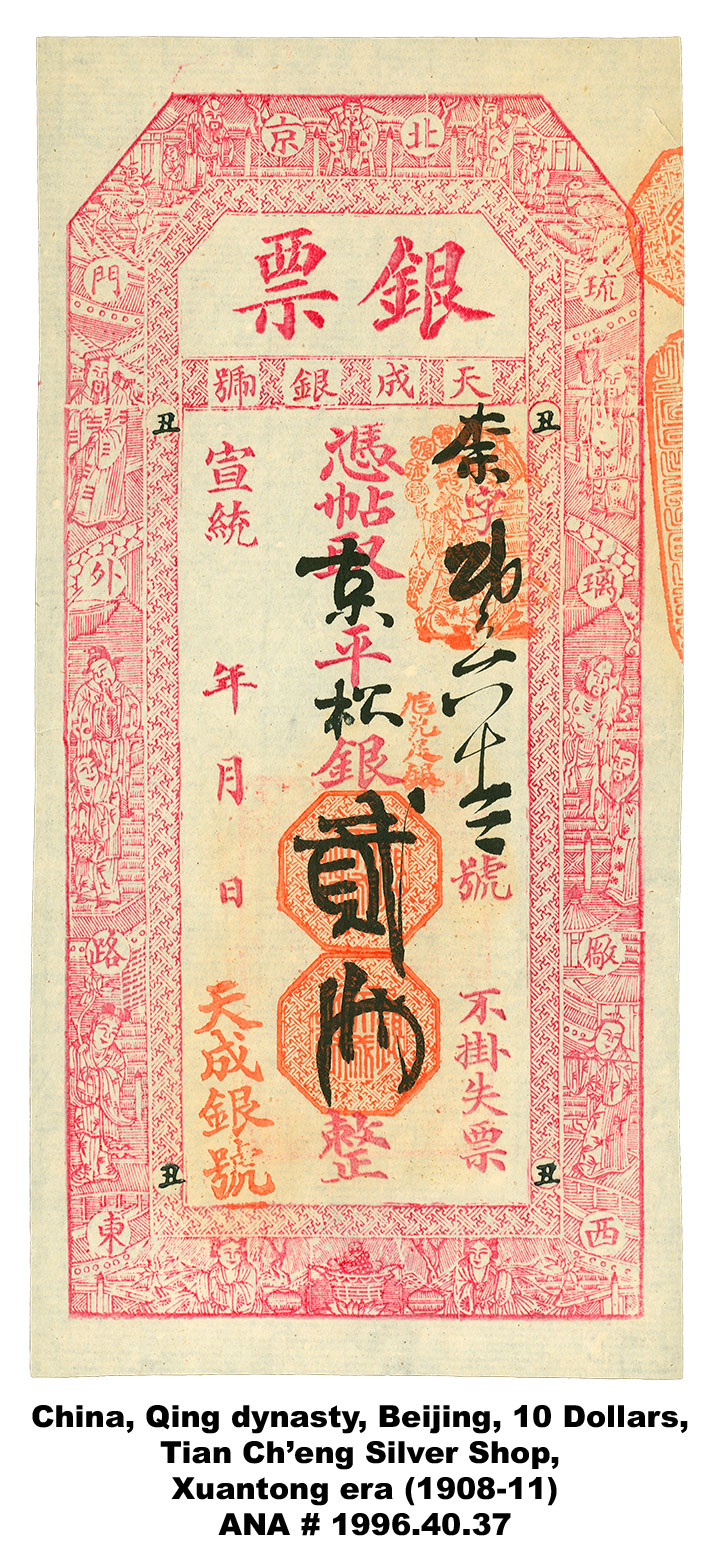 北京
琉璃廠西
門外路東
銀票
天成銀號
丑
丑
字
號
不掛失票
憑帖取京平松銀貳兩整
宣統 年 月 日
天成銀號
丑
丑
China, Qing dynasty, Beijing, 10 Dollars,
Tian Ch’eng Silver Shop,
Xuantong era (1908-11)
ANA # 1996.40.37